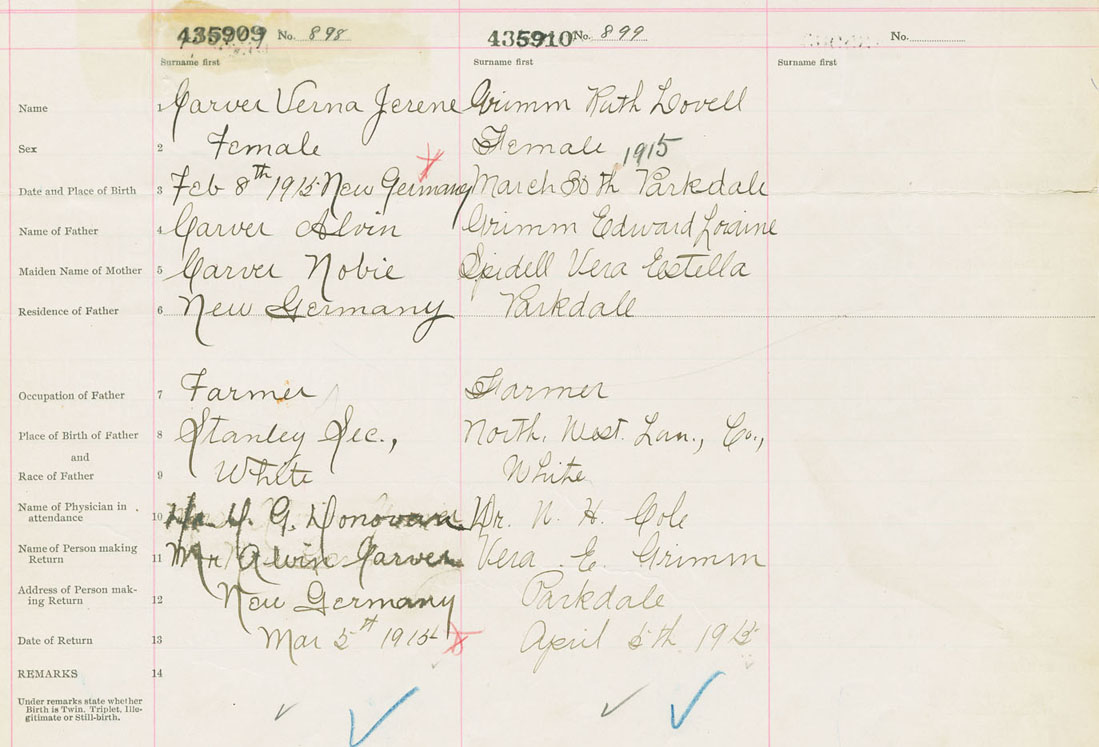 435909 No. 898 435910 No. 899 No.
Surname first Surname first Surname first
Name 1 Carver Verna Jerene Grimm Ruth Lovell
Sex 2 Female Female 1915
Date and Place of Birth 3 Feb 8th 1915 New Germany March 30th Parkdale
Name of Father 4 Carver Alvin Grimm Edward Loraine
Maiden Name of Mother 5 Carver Nobie Spidell Vera Estella
Residence of Father 6 New Germany Parkdale
Occupation of Father 7 Farmer Farmer
Place of Birth of Father 8 Stanley Sec., North. West. Lun., Co.,
and
Race of Father 9 White White
Name of Physician in
attendance 10 G. Donovan Dr. N. H. Cole
Name of Person making
Return 11 Mr Alvin Carver Vera E. Grimm
Address of Person mak-
ing Return 12 New Germany Parkdale
Date of Return 13 Mar 5th 1915 April 5th 1915
REMARKS 14
Under remarks state whether
Birth is Twin. Triplet, Ille-
gitimate or Still-birth.